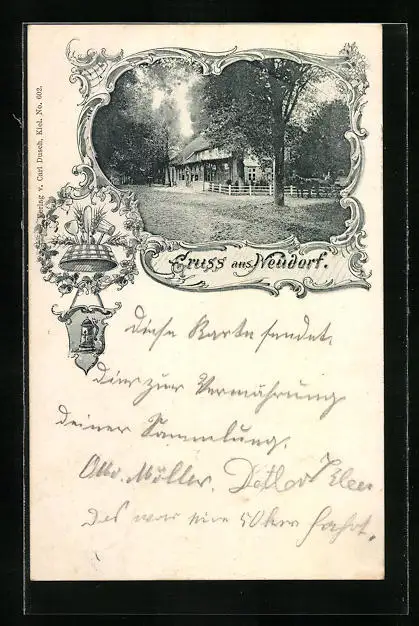 Verlag v. Carl Dusch, Kiel. No. 602.
Gruss aus Neudorf.
Diese Karte sendet
dir zur Vermährung
deiner Sammlung.
Otto Möller. Detlev
Das war eine 50 km Fahrt.